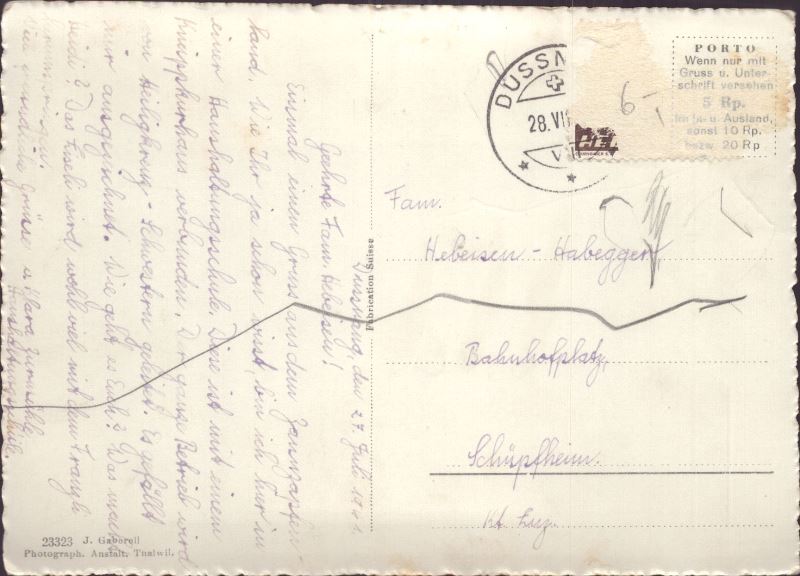 Dussnang, den 27. Juli 19
Geehrte Fam. Hebeisen!
Einmal einen Gruss aus dem
land. Wie Ihr ja schon wisst, bin ich hier in
einer Haushaltungsschule. Diese ist mit einem
Kneippkurhaus verbunden. Der ganze Betrieb wird
von Heiligkreuz-Schwestern geleitet. Es gefällt
mir ausgezeichnet. Wie geht es Euch? Was macht
Heidi? Das Eseli wird wohl viel mit dem
Viele freundliche Grüsse
Clara
DUSSN
28. VII
PORTO
Wenn nur mit
Gruss u. Unter-
schrift versehen
5 Rp.
im In- u. Ausland,
sonst 10 Rp.
bezw. 20 Rp
6.-
Fam.
Hebeisen - Habegger
Bahnhofplatz,
Schüpfheim.
Kt. Luz.
Fabrication Suisse
23323 J. Gaberell
Photograph. Anstalt, Thalwil.